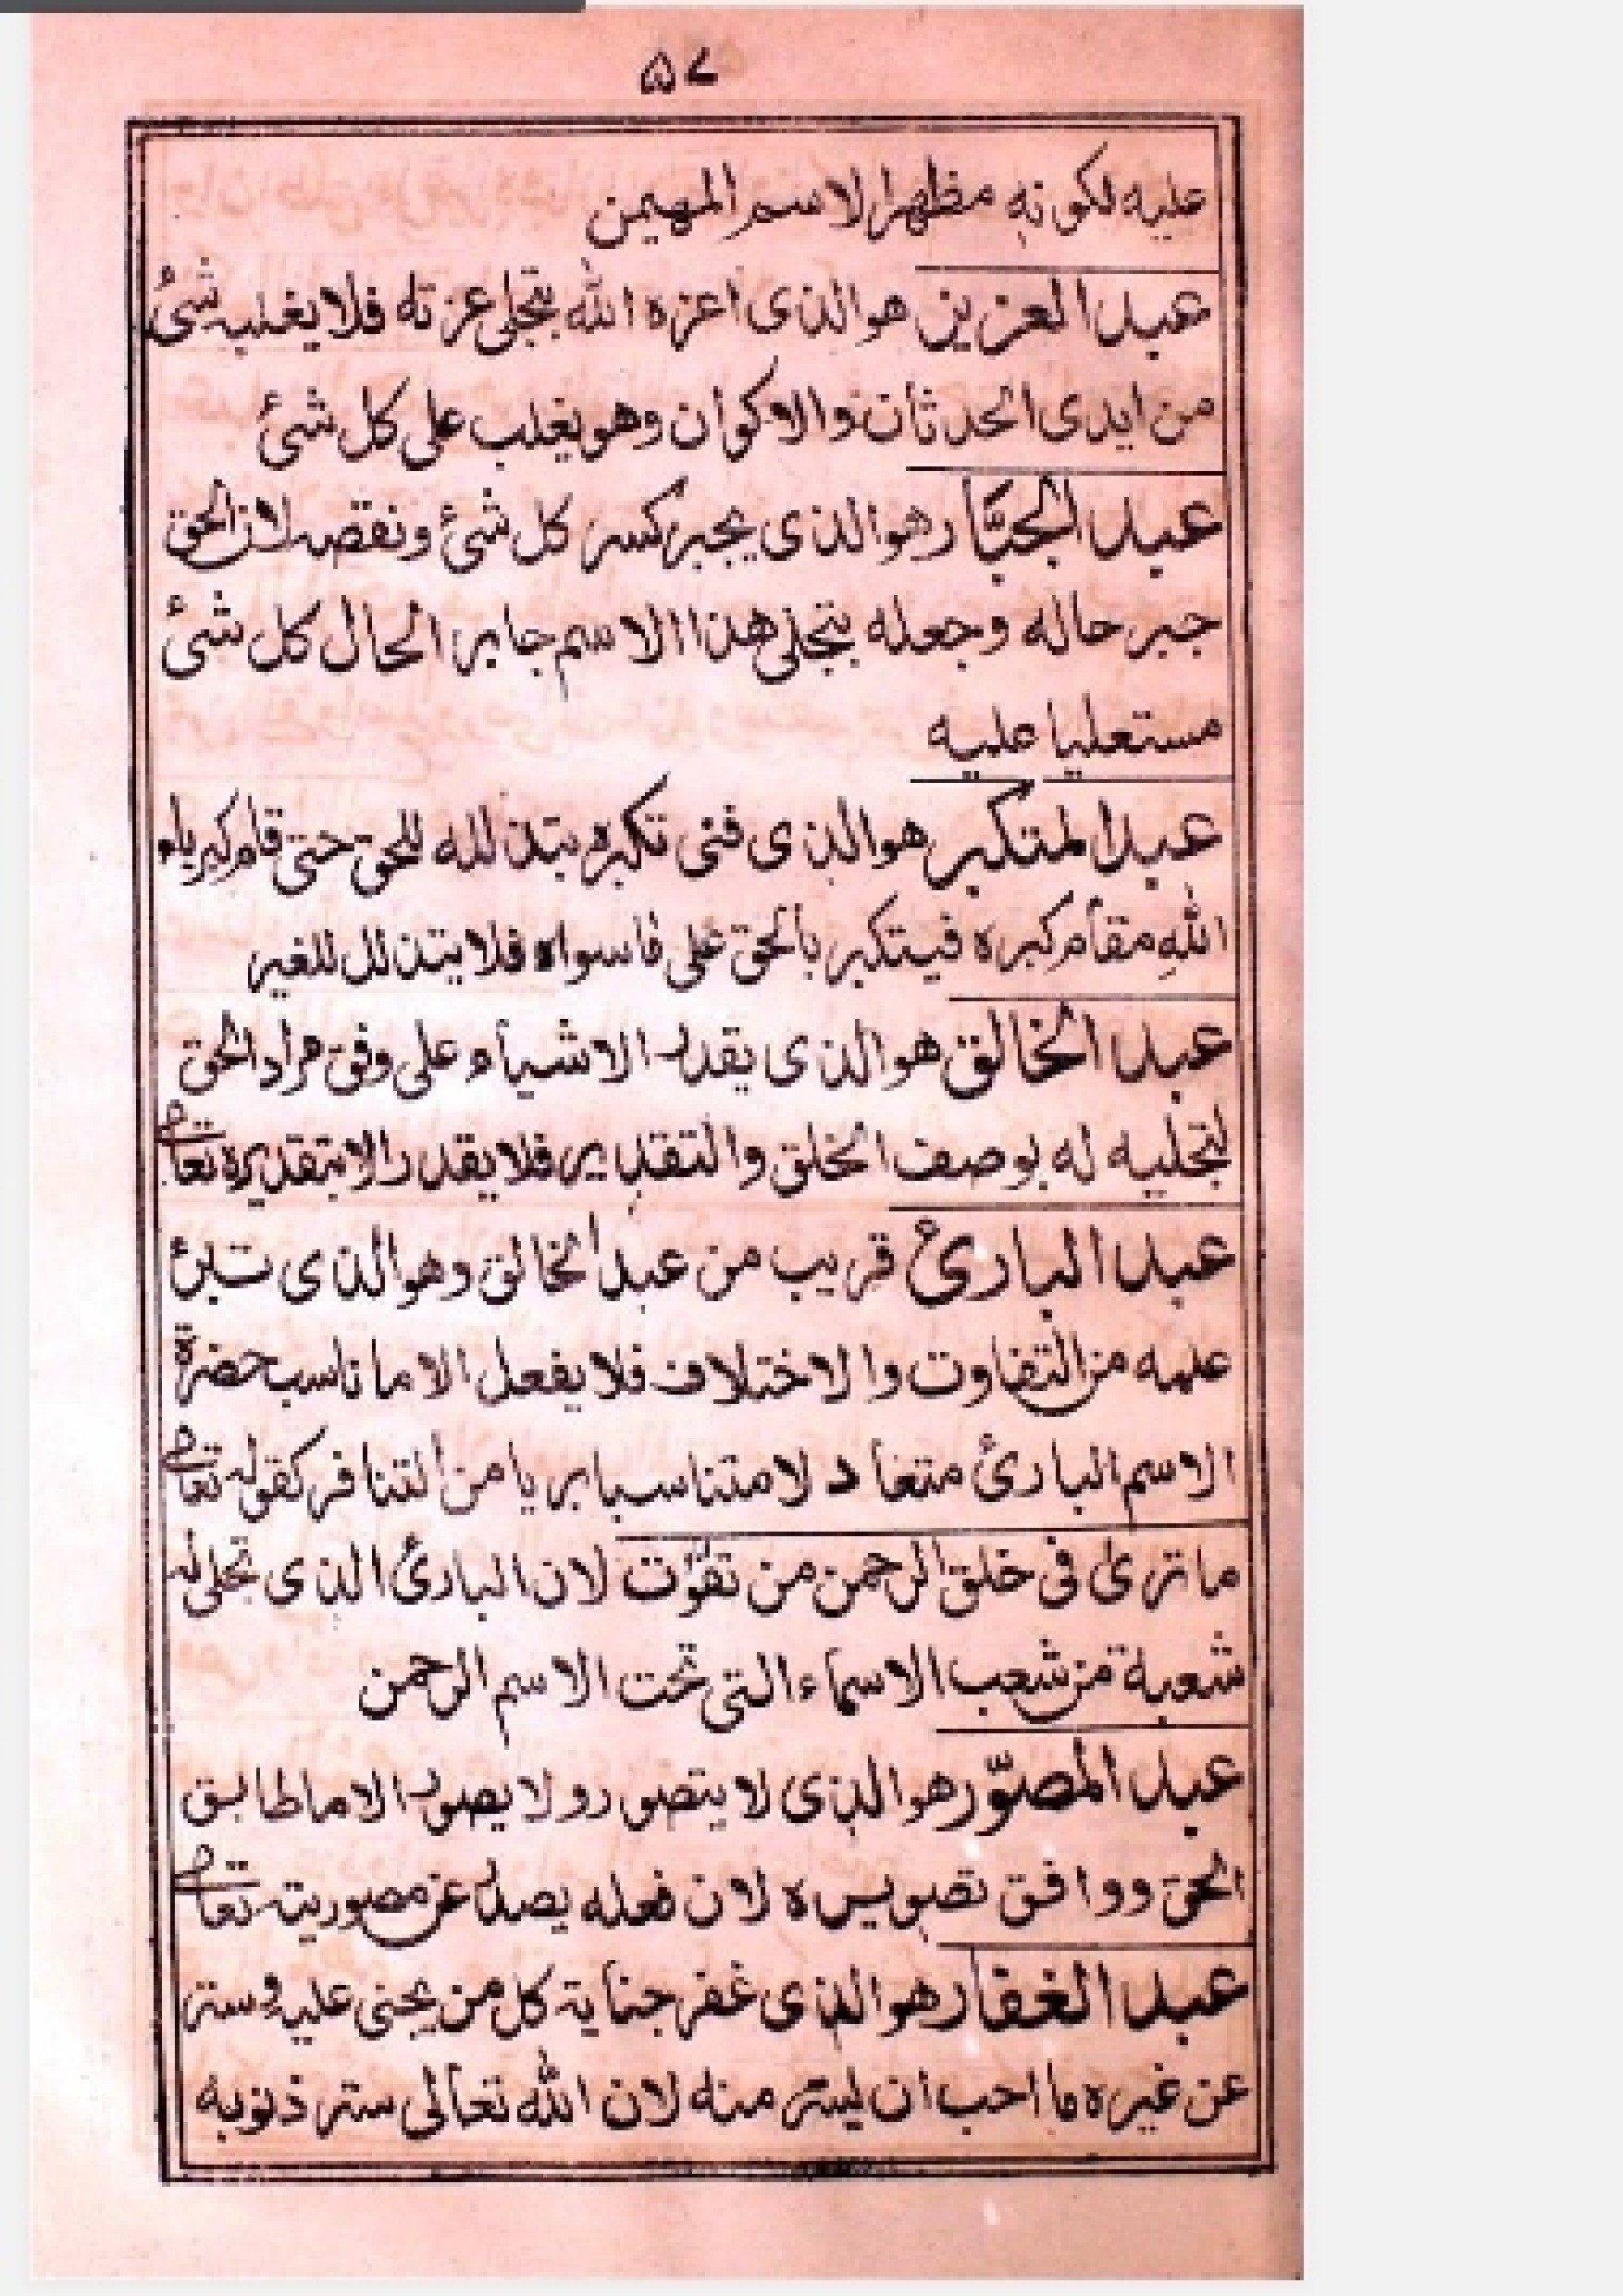 ۵۷
عليه لكونه مظهرا لاسم المهيمن
عبد العزيز هو الذى اعزه الله بتجلى عزته فلا يغلبه شئ
من ايدى الحدثان والاكوان وهو يغلب على كل شئ
عبد الجبّار هو الذى يجبر كسر كل شئ ونقصه لان الحق
جبر حاله وجعله بتجلى هذا الاسم جابرا لحال كل شئ
مستعليا عليه
عبد المتكبر هو الذى فنى تكبره بتذلله للحق حتى قام كبرياء
الله مقام كبره فيتكبر بالحق على ماسواه فلا يتذلل للغير
عبد الخالق هو الذى يقدر الاشياء على وفق مراد الحق
لتجليه له بوصف الخلق والتقدير فلا يقدر الا بتقديره تعا
عبد البارئ قريب من عبد الخالق وهو الذى تبرئ
عليه من التفاوت والاختلاف فلا يفعل الا ما ناسب حضرة
الاسم البارئ متعادلا متناسبا بريا من التنافر كقوله تعا
ما ترى فى خلق الرحمن من تفوّت لان البارئ الذى تجلى له
شعبة من شعب الاسماء التى تحت الاسم الرحمن
عبد المصوّر هو الذى لا يتصور ولا يصور الا ما طابق
الحق ووافق تصويره لان فعله يصدر عن مصوريته تعا
عبد الغفار هو الذى غفر جناية كل من يجنى عليه وستر
عن غيره ما احب ان يستر منه لان الله تعالى ستر ذنوبه